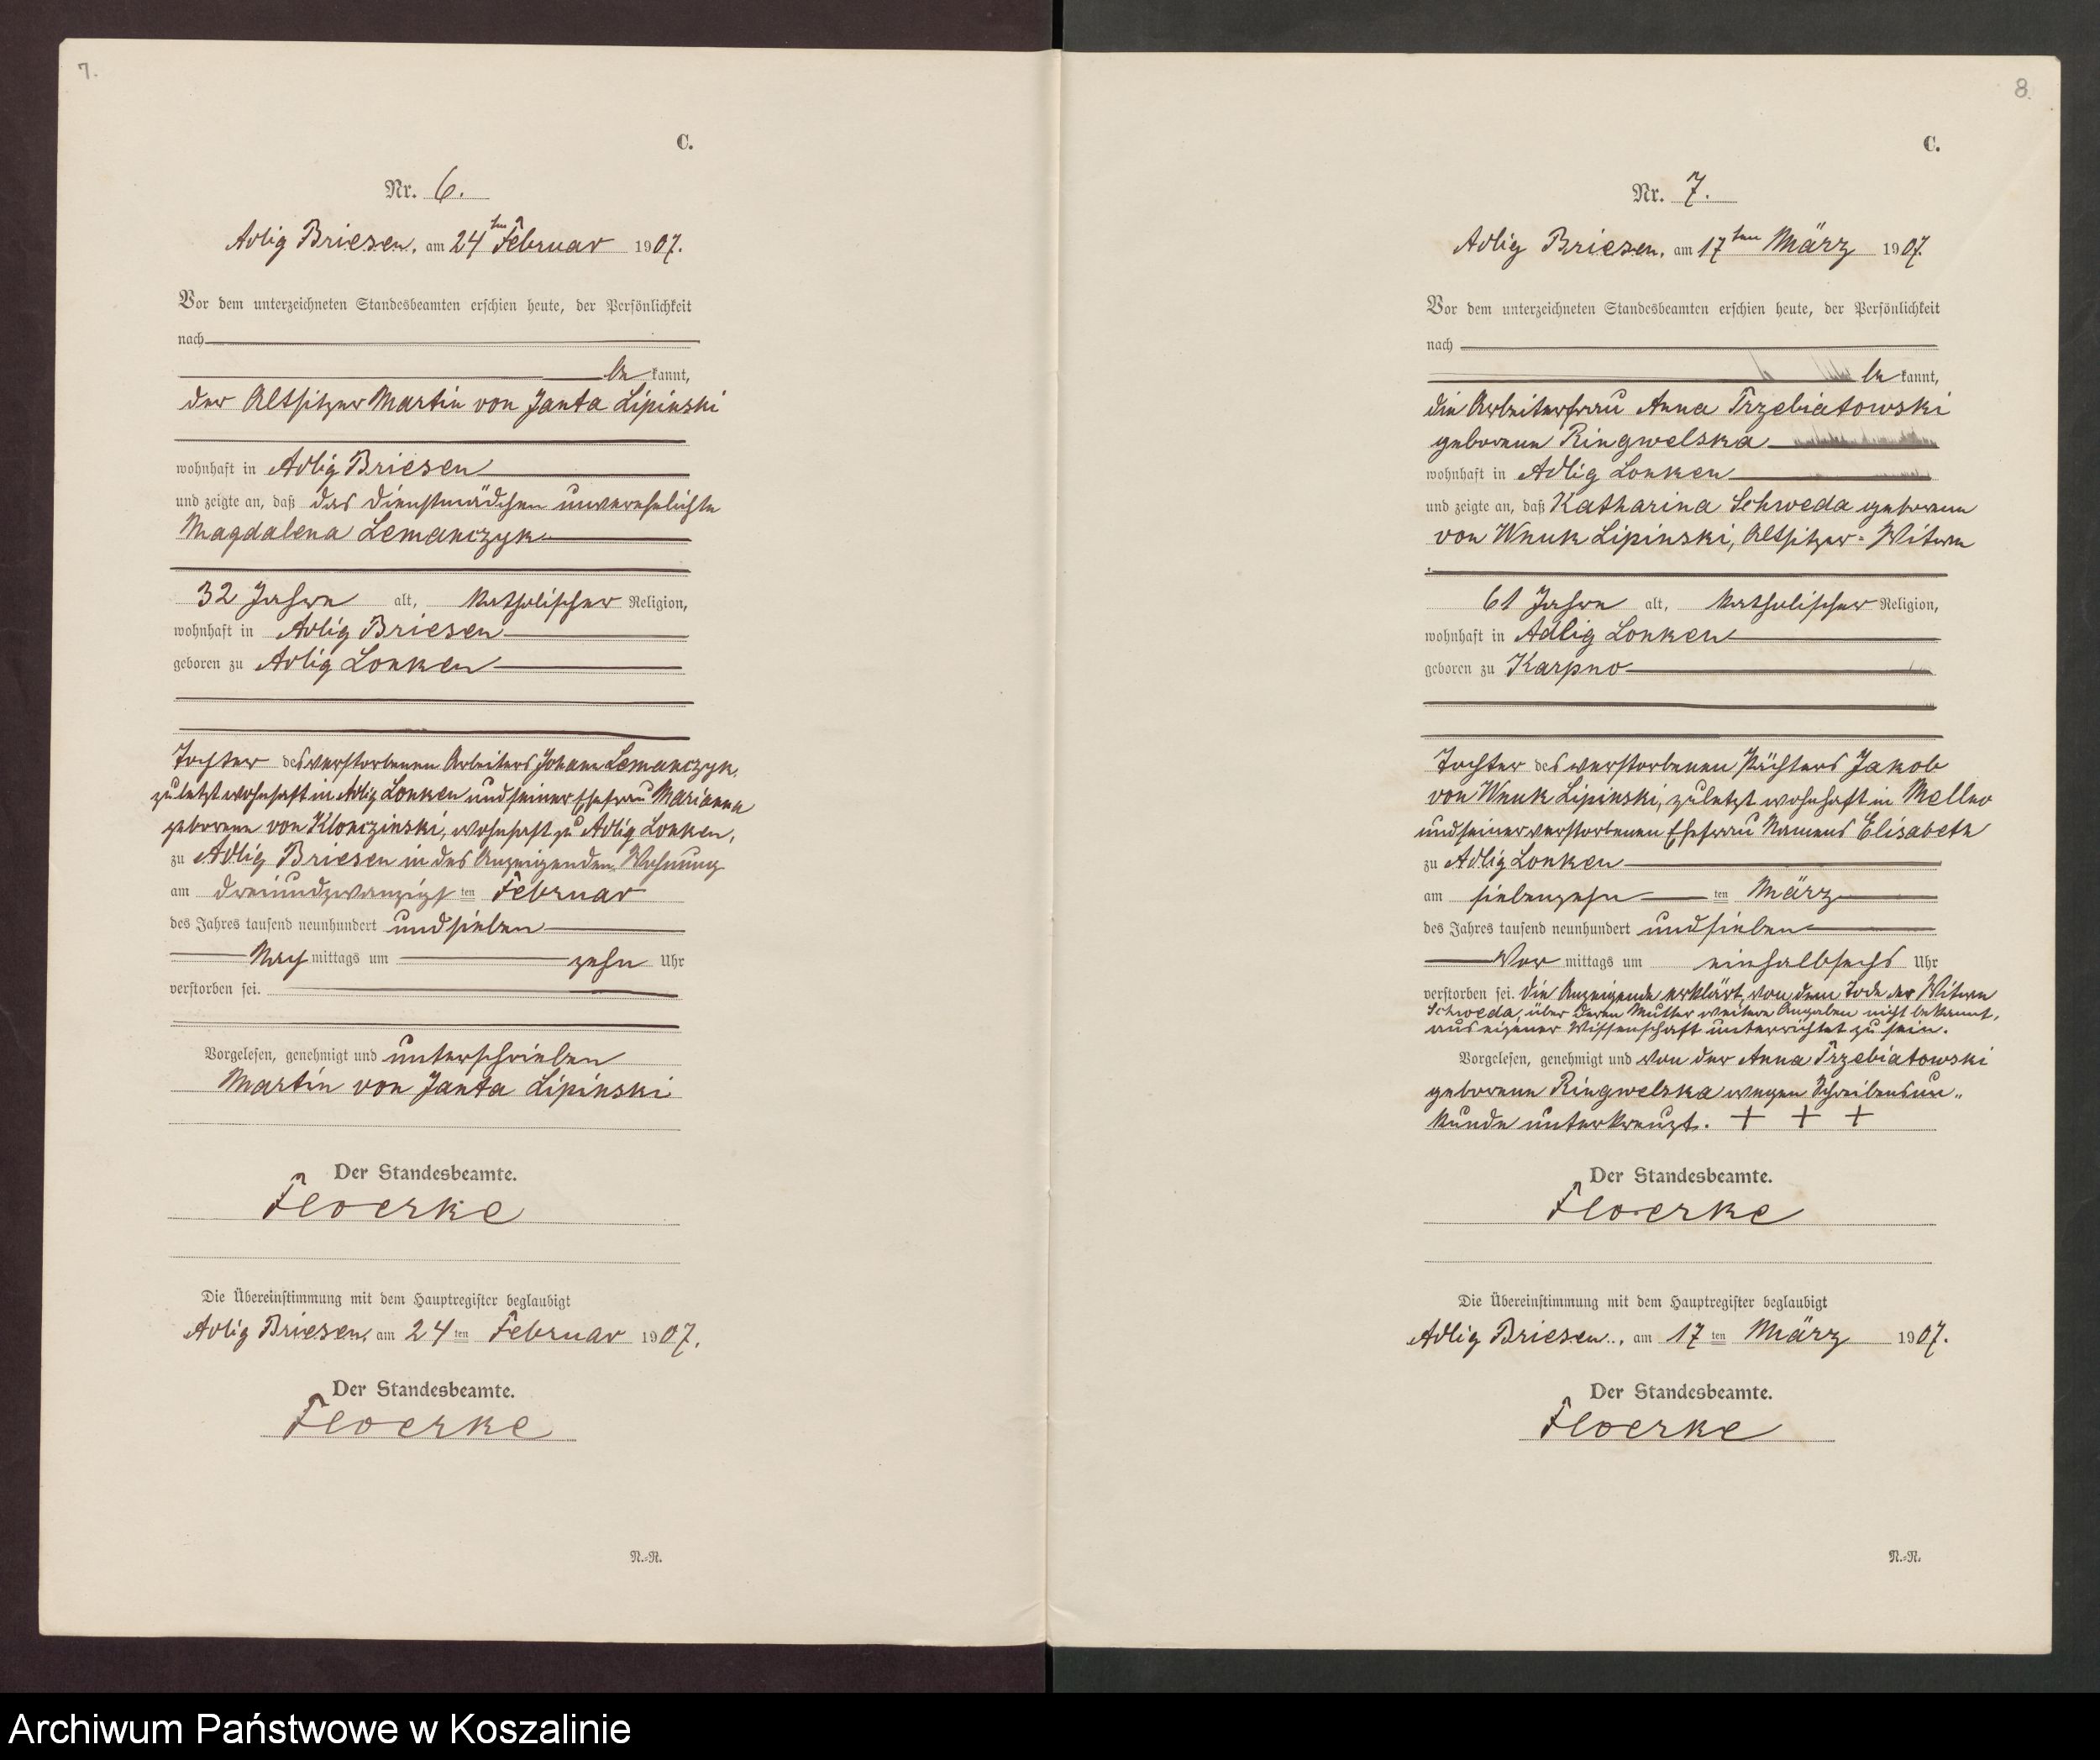 7.
C.
Nr. 6.
Adlig Briesen, am 24ten Februar 1907.
Vor dem unterzeichneten Standesbeamten erschien heute, der Persönlichkeit
nach
be kannt,
der Altsitzer Martin von Janta Lipinski
wohnhaft in Adlig Briesen
und zeigte an, daß das Dienstmädchen unverehelichte
Magdalena Lemanczyk
32 Jahre alt, katholischer Religion,
wohnhaft in Adlig Briesen
geboren zu Adlig Lonken
Tochter des verstorbenen Arbeiters Johann Lemanczyk,
zuletzt wohnhaft in Adlig Lonken und seiner Ehefrau Marianna
geborene von Klonczinski, wohnhaft zu Adlig Lonken,
zu Adlig Briesen in des Anzeigenden Wohnung
am dreiundzwanzigsten Februar
des Jahres tausend neunhundert und sieben
Nach mittags um zehn Uhr
verstorben sei.
Vorgelesen, genehmigt und unterschrieben
Martin von Janta Lipinski
Der Standesbeamte.
Floerke
Die Übereinstimmung mit dem Hauptregister beglaubigt
Adlig Briesen, am 24 ten Februar 1907.
Der Standesbeamte.
Floerke
N.-R.
8.
C.
Nr. 7.
Adlig Briesen, am 17ten März 1907.
Vor dem unterzeichneten Standesbeamten erschien heute, der Persönlichkeit
nach
be kannt,
die Arbeiterfrau Anna Trzebiatowski
geborene Ringwelska
wohnhaft in Adlig Lonken
und zeigte an, daß Katharina Schweda geborene
von Wnuk Lipinski, Altsitzer-Witwe
61 Jahre alt, katholischer Religion,
wohnhaft in Adlig Lonken
geboren zu Karpno
Tochter des verstorbenen Pächters Jakob
von Wnuk Lipinski, zuletzt wohnhaft in Mellno
und seiner verstorbenen Ehefrau Namens Elisabeth
zu Adlig Lonken
am siebenzehn ten März
des Jahres tausend neunhundert und sieben
Vor mittags um einhalbsechs Uhr
verstorben sei. Die Anzeigende erklärt, von dem Tode der Witwe
Schweda, über deren Mutter weitere Angaben nicht bekannt,
aus eigener Wissenschaft unterrichtet zu sein.
Vorgelesen, genehmigt und von der Anna Trzebiatowski
geborene Ringwelska wegen Schreibensun-
kunde unterkreuzt. + + +
Der Standesbeamte.
Floerke
Die Übereinstimmung mit dem Hauptregister beglaubigt
Adlig Briesen, am 17 ten März 1907.
Der Standesbeamte.
Floerke
N.-R.
Archiwum Państwowe w Koszalinie